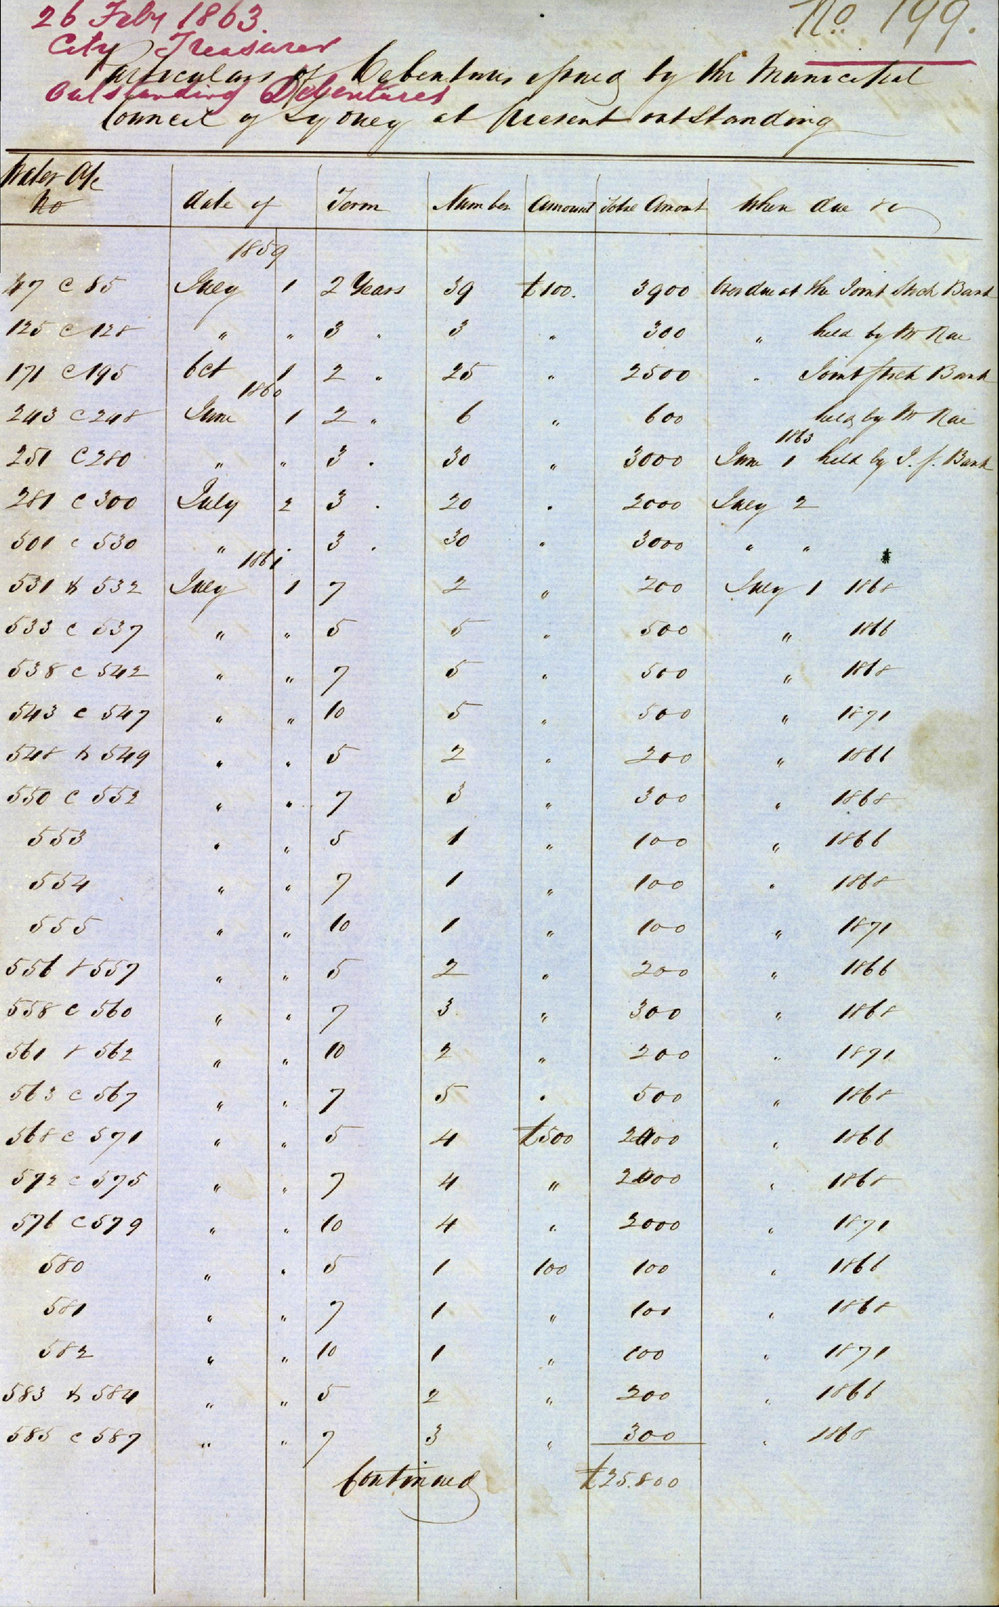 26 Feby 1863.
No. 199.
City Treasurer
Outstanding Debentures
Particulars of Debentures issued by the Municipal
Council of Sydney at present outstanding
Water A/c No | date of | Term | Number | Amount | Total Amont | When due &c
1859
47 @ 85 | July 1 | 2 Years | 39 | £100. | 3900 | Overdue at the Joint Stock Bank
125 @ 128 | " " | 3 " | 3 | " | 300 | " held by Mr Rae
171 @ 195 | Oct 1 | 2 " | 25 | " | 2500 | " Joint Stock Bank
1860
243 @ 248 | June 1 | 2 " | 6 | " | 600 | held by Mr Rae
1863
251 @ 280 | " " | 3 . | 30 | " | 3000 | June 1 held by J. S. Bank
281 @ 300 | July 2 | 3 . | 20 | " | 2000 | July 2
501 @ 530 | " " | 3 . | 30 | " | 3000 | " "
1861
531 & 532 | July 1 | 7 | 2 | " | 200 | July 1 1868
533 @ 537 | " " | 5 | 5 | " | 500 | " 1866
538 @ 542 | " " | 7 | 5 | " | 500 | " 1868
543 @ 547 | " " | 10 | 5 | " | 500 | " 1871
548 & 549 | " " | 5 | 2 | " | 200 | " 1866
550 @ 552 | " " | 7 | 3 | " | 300 | " 1868
553 | " " | 5 | 1 | " | 100 | " 1866
554 | " " | 7 | 1 | " | 100 | " 1868
555 | " " | 10 | 1 | " | 100 | " 1871
556 & 557 | " " | 5 | 2 | " | 200 | " 1866
558 @ 560 | " " | 7 | 3 | " | 300 | " 1868
561 & 562 | " " | 10 | 2 | " | 200 | " 1871
563 @ 567 | " " | 7 | 5 | " | 500 | " 1868
568 @ 571 | " " | 5 | 4 | £500 | 2000 | " 1866
572 @ 575 | " " | 7 | 4 | " | 2000 | " 1868
576 @ 579 | " " | 10 | 4 | " | 2000 | " 1871
580 | " " | 5 | 1 | 100 | 100 | " 1866
581 | " " | 7 | 1 | " | 100 | " 1868
582 | " " | 10 | 1 | " | 100 | " 1871
583 & 584 | " " | 5 | 2 | " | 200 | " 1866
585 @ 587 | " " | 7 | 3 | " | 300 | " 1868
Continued £25.800